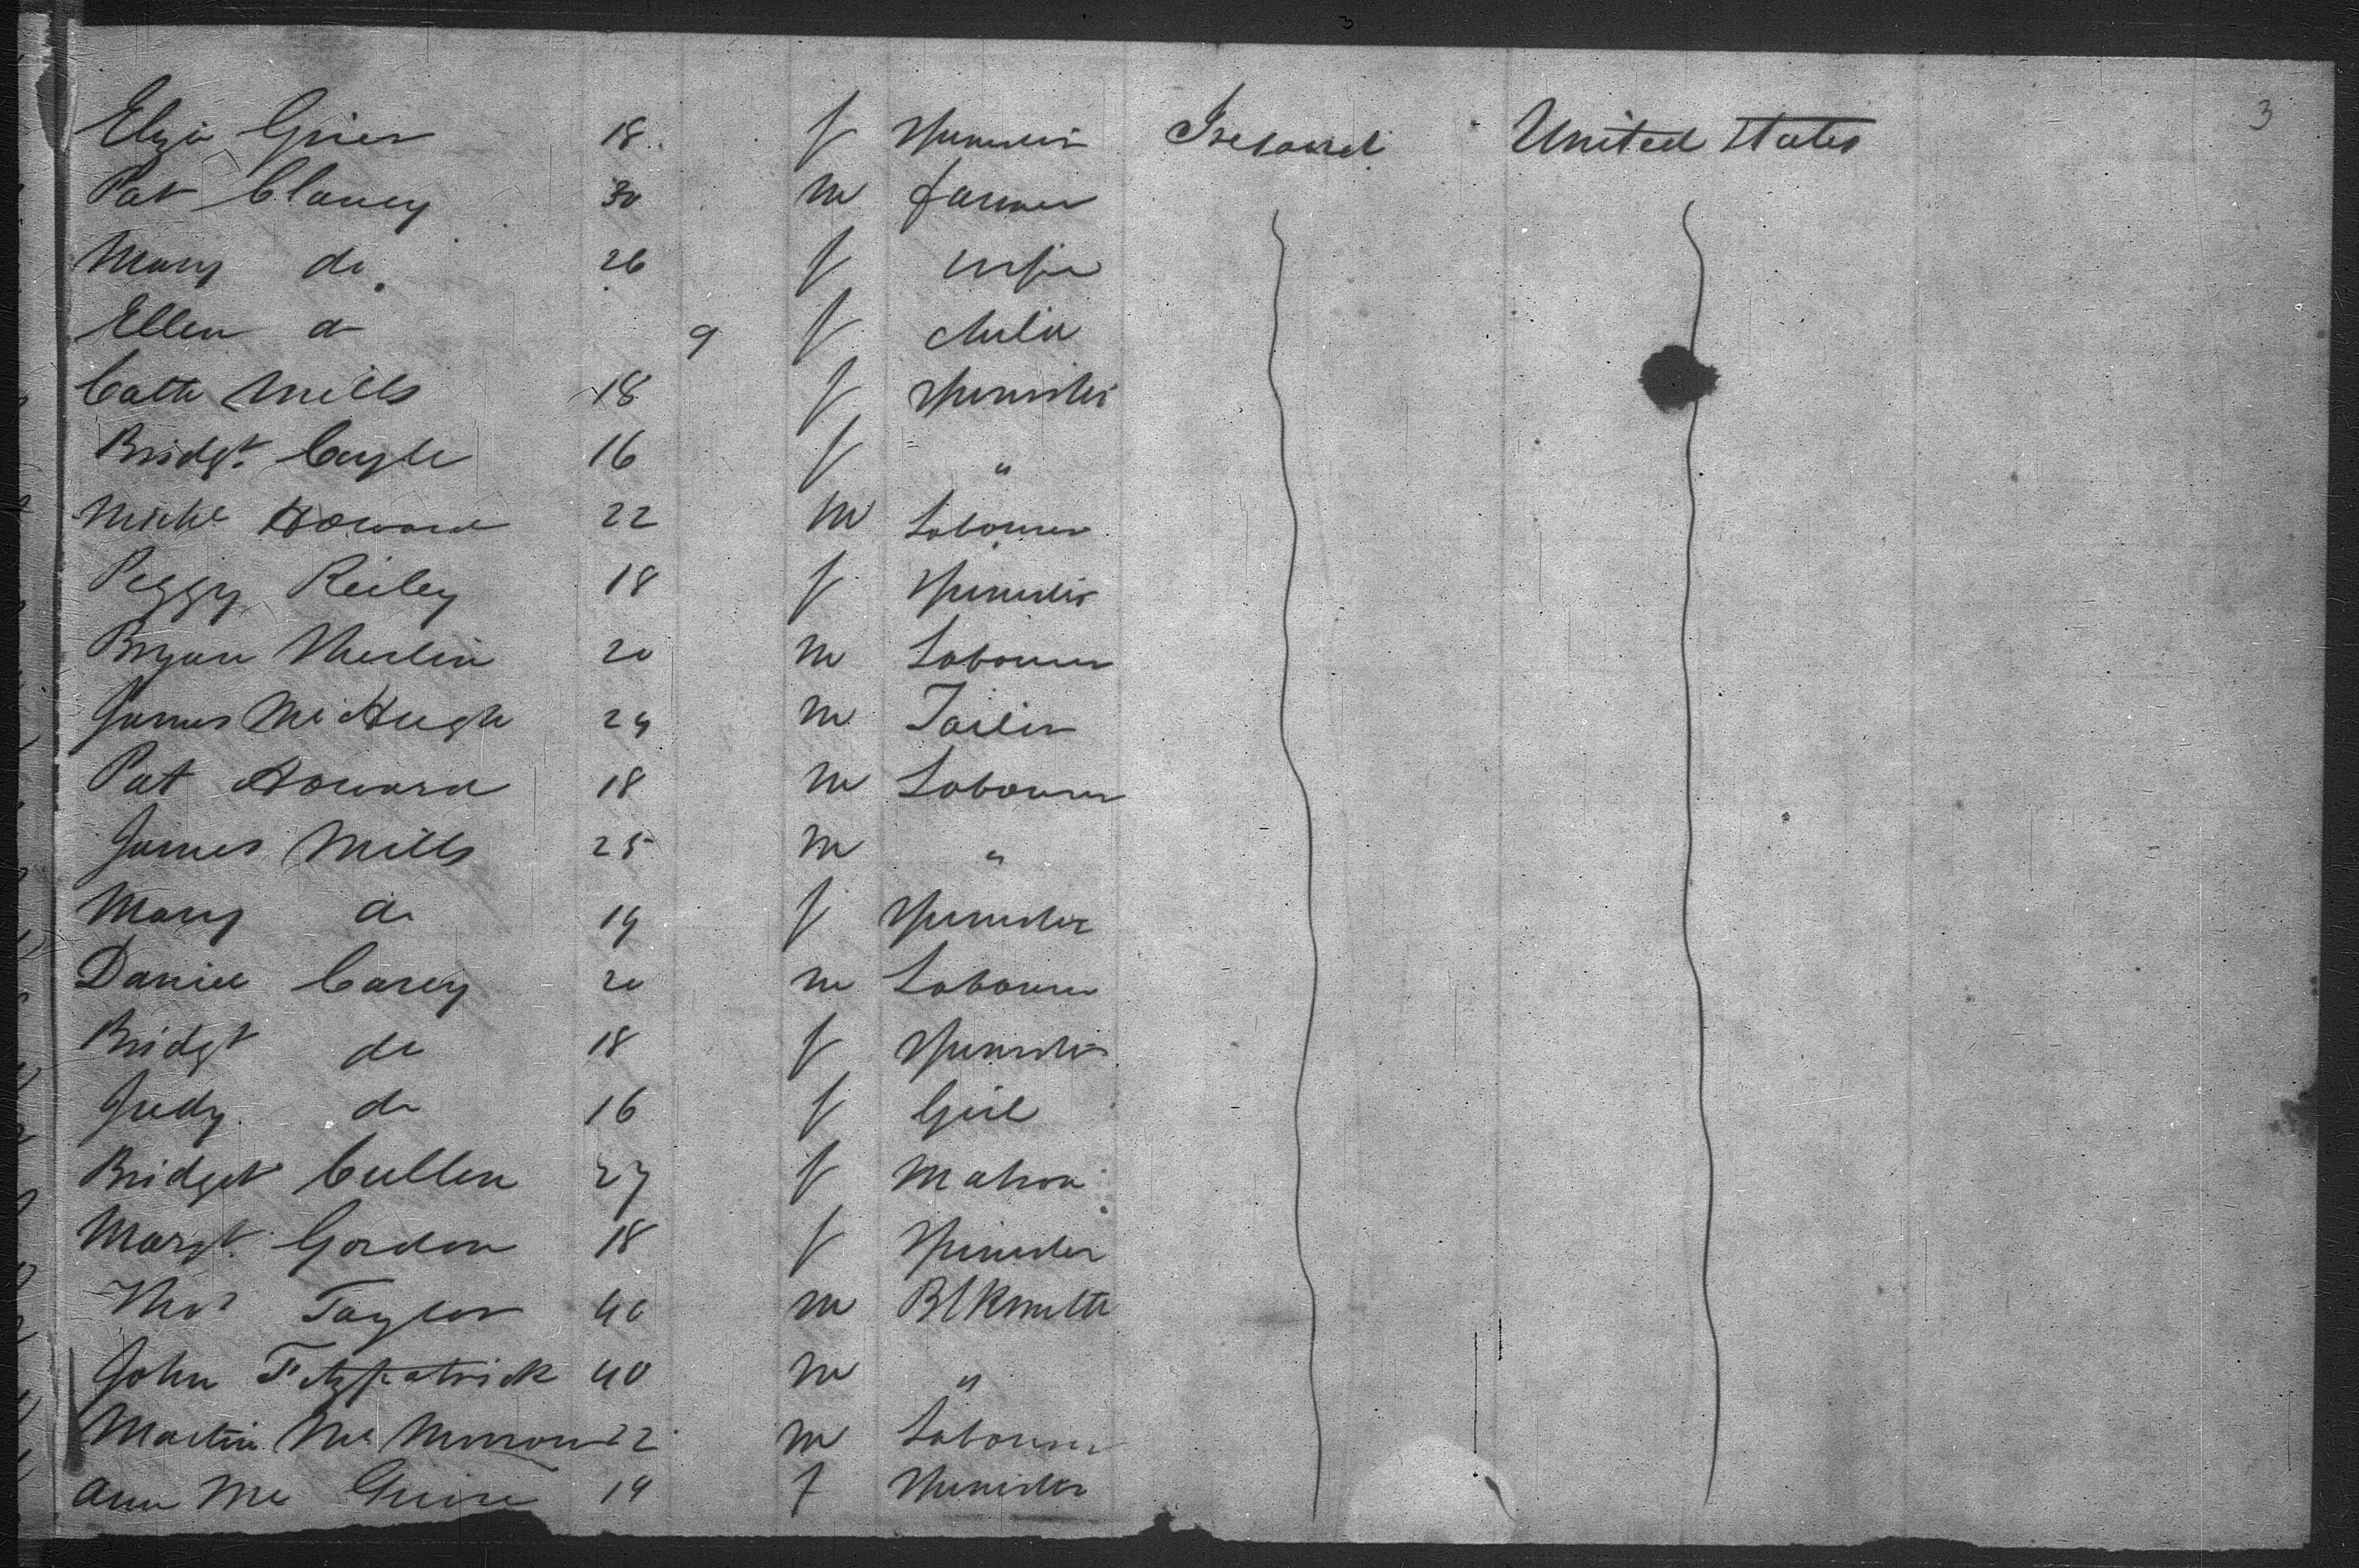 3
3
Eliza Grier 18 f Spinster Ireland United States
Pat Clancy 30 m farmer
Mary do 26 f wife
Ellen do 9 f child
Cath Mills 18 f Spinster
Bridgt. Coyle 16 f "
Michl Howard 22 m Labourer
Peggy Reiley 18 f Spinster
Bryan 20 m Labourer
James McHugh 24 m Tailor
Pat Howard 18 m Labourer
James Mills 25 m "
Mary do 19 f Spinster
Daniel Carey 20 m Labourer
Bridgt do 18 f Spinster
Judy do 16 f Girl
Bridget Cullen 27 f Matron
Margt. Gordon 18 f Spinster
Thos Taylor 40 m Blksmith
John Fitzpatrick 40 m "
Martin Mc Morrow 22 m Labourer
Ann Mc 19 f Spinster